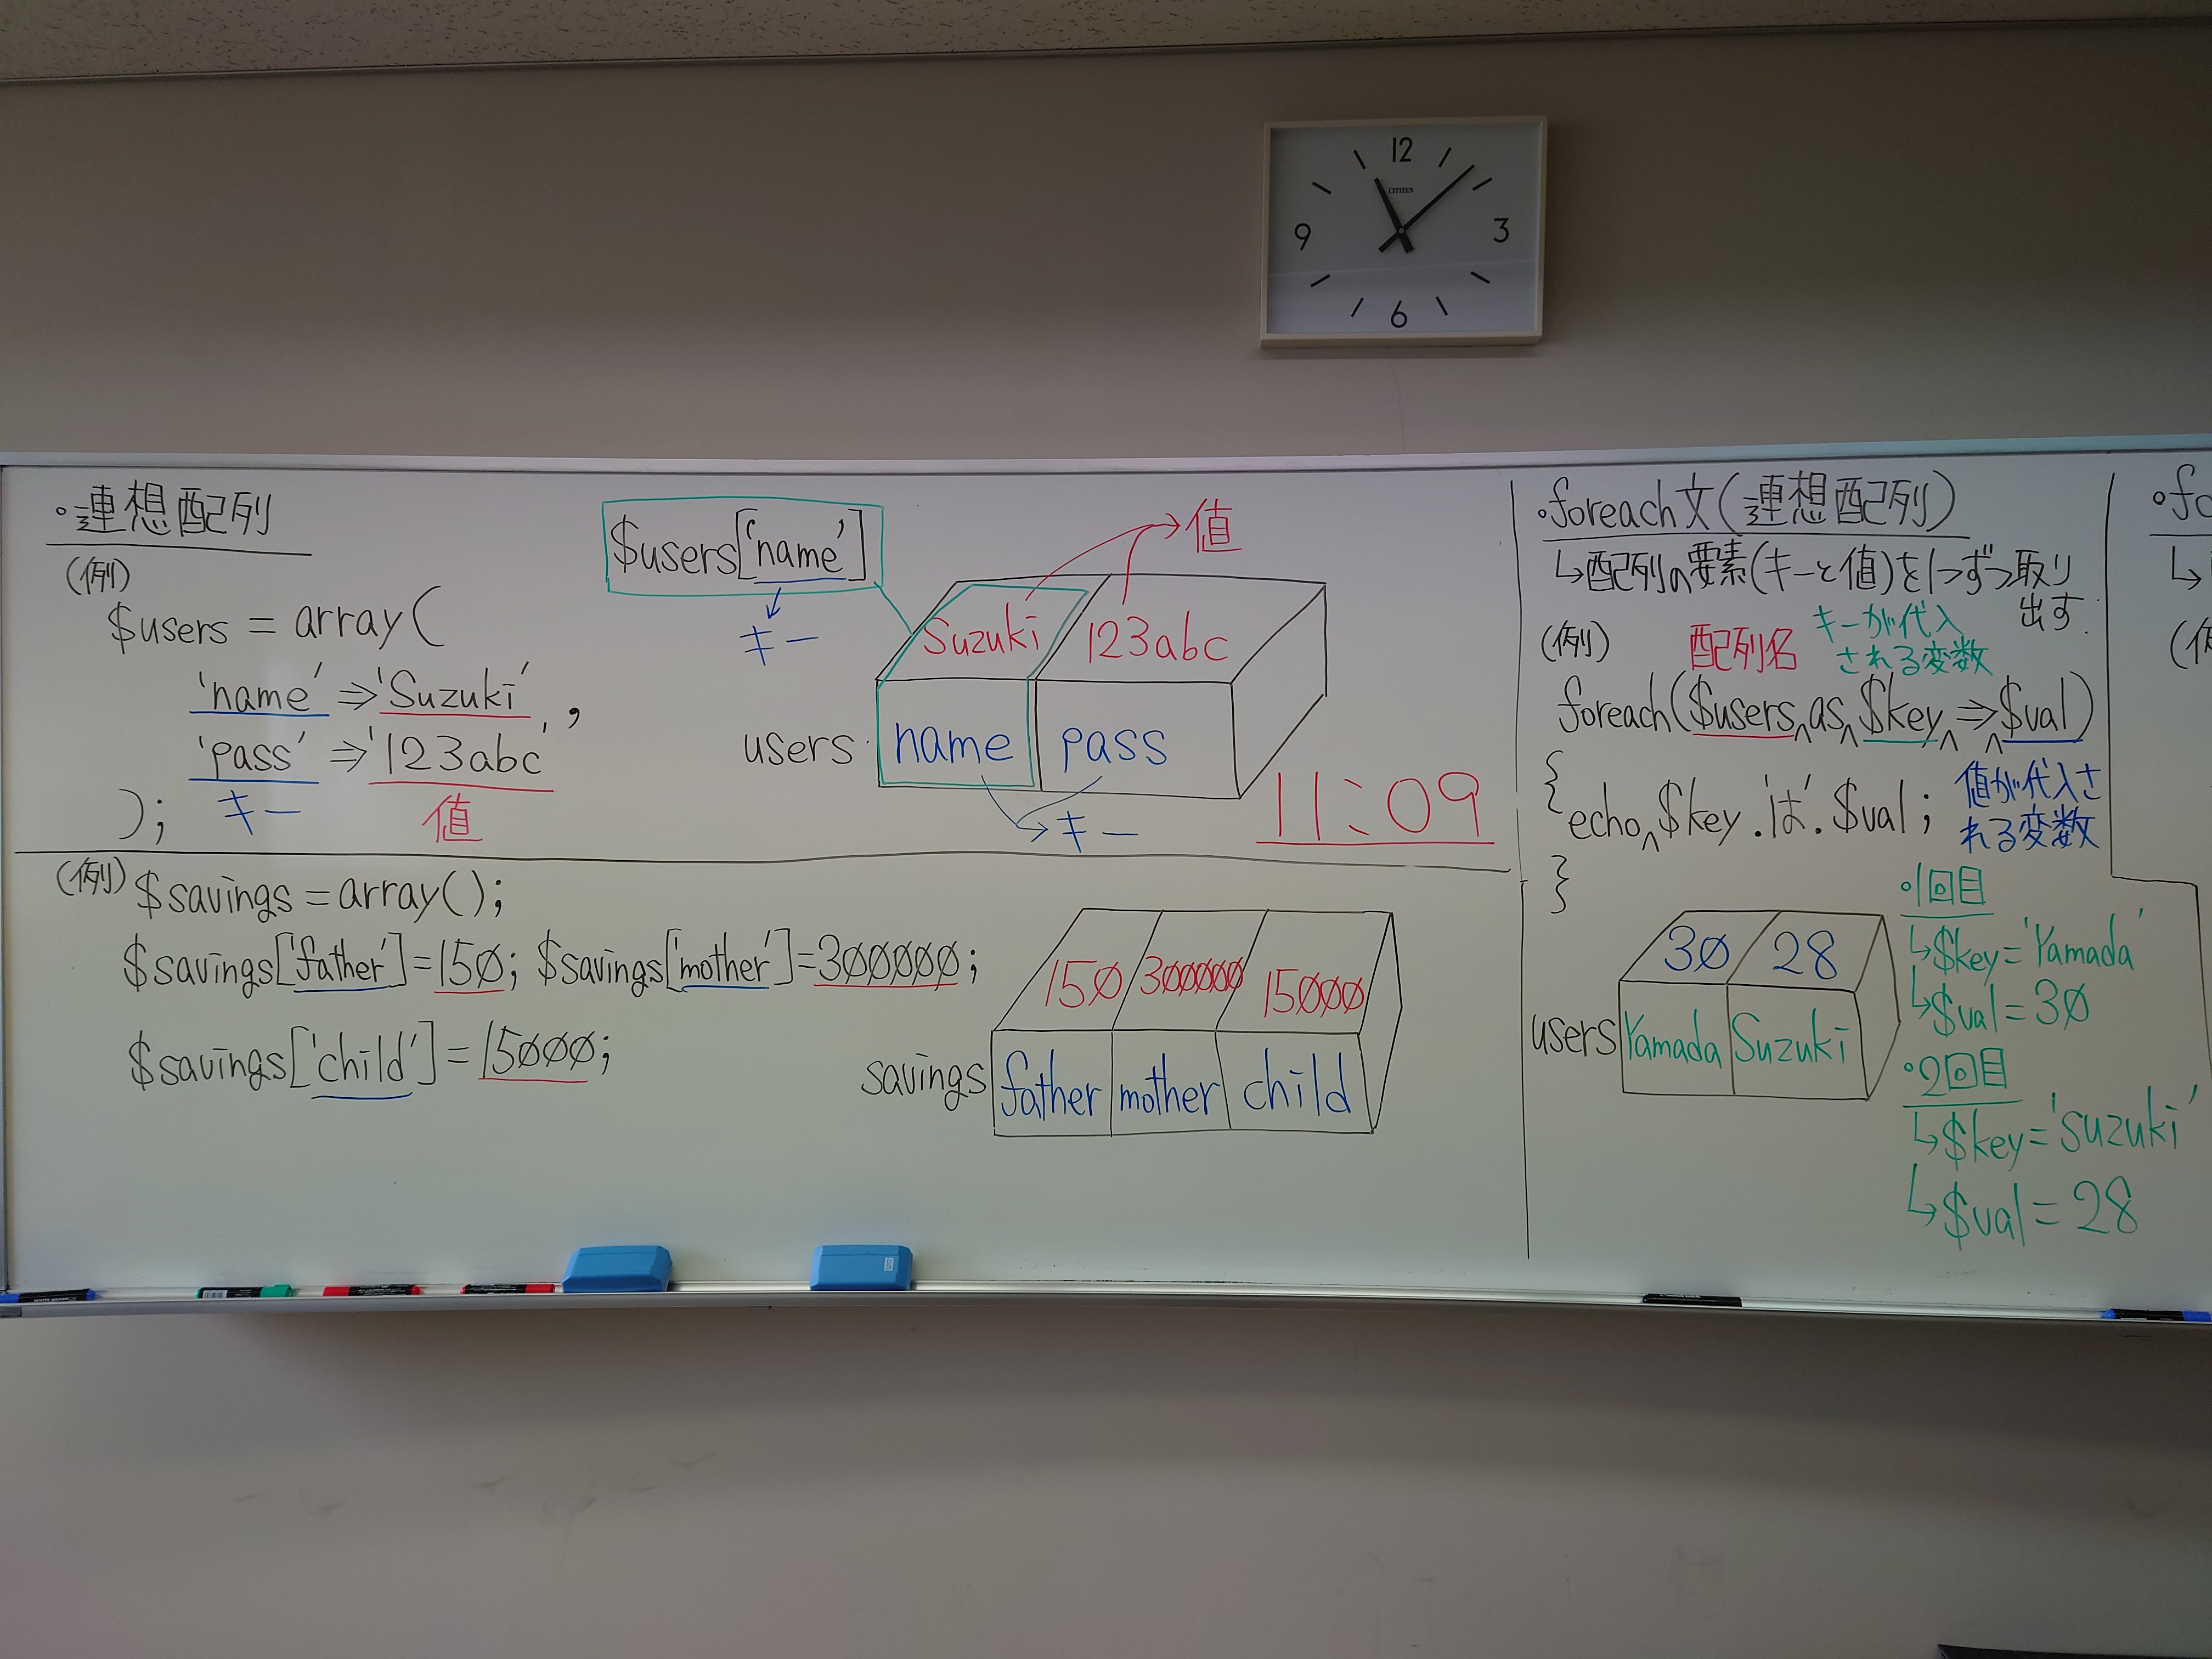 12
CITIZEN
9
3
6
・連想配列
(例)
$users = array(
'name' => 'Suzuki' ,
'pass' => '123abc'
);
キー
値
$users['name']
キー
値
Suzuki 123abc
users name pass
キー
11:09
(例) $savings = array();
$savings['father']=150; $savings['mother']=300000;
$savings['child'] = 15000;
150 300000 15000
savings father mother child
・foreach文(連想配列)
↳配列の要素(キーと値)を1つずつ取り
出す.
(例)
配列名
キーが代入
される変数
foreach($users^as^$key^=>^$val)
{
echo^$key.'は'.$val;
値が代入さ
れる変数
}
30 28
users Yamada Suzuki
・1回目
↳$key='Yamada'
↳$val=30
・2回目
↳$key='suzuki'
↳$val=28
・fo
↳
(例